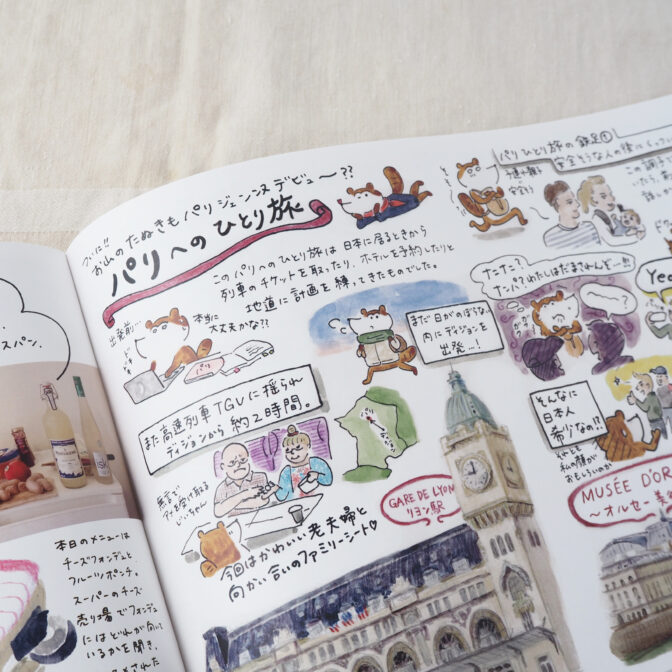 スパン。
本日のメニューは
チーズフォンデュと
フルーツポンチ。
スーパーのチーズ
売り場でフォンデュ
にはどれが向いて
いるかを聞き、
ついに!!
お山のたぬきもパリジェンヌデビュ〜??
パリへのひとり旅
このパリへのひとり旅は日本に居るときから
列車のチケットを取ったり、ホテルを予約したりと
地道に計画を練ってきたものでした。
出発前…
本当に
大丈夫かな??
パリ
まだ日がのぼらない
内にディジョンを
出発…!
まず高速列車TGVに揺られ
ディジョンから約2時間。
パリ
ディジョン
無言で
アメを受け取る
じいちゃん
今回はかわいい老夫婦と
向かい合いのファミリーシート♡
GARE DE LYON
リヨン駅
パリひとり旅の鉄足①
安全そうな人の後に
この調
いたら、
ナニナニ?
ナンパ?わたしはだまされんぞー!!!
Yo
そんなに
日本人
希少なの!?
それとも
私の顔が
おもしろいのか
MUSÉE D'OR
〜オルセー美